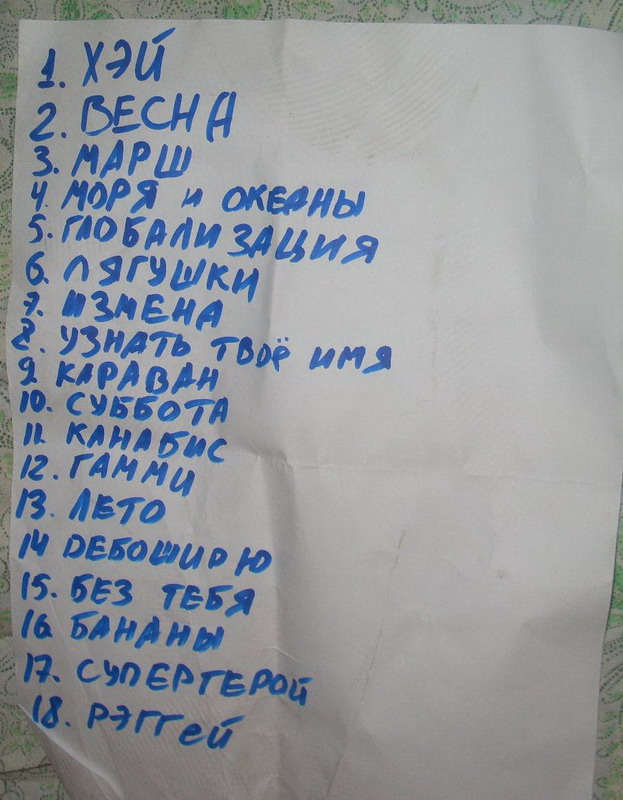 1. ХЭЙ
2. ВЕСНА
3. МАРШ
4. МОРЯ и ОКЕАНЫ
5. ГЛОБАЛИЗАЦИЯ
6. ЛЯГУШКИ
7. ИЗМЕНА
8. УЗНАТЬ ТВОЁ ИМЯ
9. КАРАВАН
10. СУББОТА
11. КАНАБИС
12. ГАММИ
13. ЛЕТО
14 ДЕБОШИРЮ
15. БЕЗ ТЕБЯ
16. БАНАНЫ
17. СУПЕРГЕРОЙ
18. РЭГГЕЙ